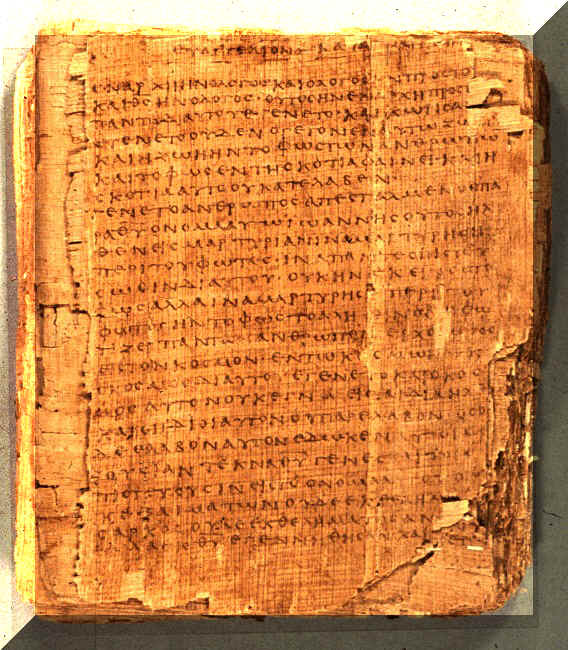 ΕΥΑΓΓΕΛΙΟΝ ΚΑΤΑ
ΕΝΑΡΧΗΗΝΟΛΟΓΟΣΚΑΙΟΛΟΓΟΣΗΝΠΡΟΣΤΟ
ΚΑΙΘΣΗΝΟΛΟΓΟΣ·ΟΥΤΟΣΗΝΕΝΑΡΧΗΠΡΟΣ
ΠΑΝΤΑΔΙΑΥΤΟΥΕΓΕΝΕΤΟ·ΚΑΙΧΩΡΙΣΑ
ΕΓΕΝΕΤΟΥΔΕΝΟΓΕΓΟΝΕΝΕΝΑΥΤΩΖΩ
ΚΑΙΗΖΩΗΗΝΤΟΦΩΣΤΩΝΑΝΘΡΩΠΩ
ΚΑΙΤΟΦΩΣΕΝΤΗΣΚΟΤΙΑΦΑΙΝΕΙ·ΚΑΙΗ
ΣΚΟΤΙΑΑΥΤΟΟΥΚΑΤΕΛΑΒΕΝ
ΕΓΕΝΕΤΟΑΝΘΡΩΠΟΣΑΠΕΣΤΑΛΜΕΝΟΣΠΑ
ΡΑΘΥΟΝΟΜΑΑΥΤΩΙΩΑΝΝΗΣΟΥΤΟΣΗΛ
ΘΕΝΕΙΣΜΑΡΤΥΡΙΑΝΙΝΑΜΑΡΤΥΡΗΣΗ
ΠΕΡΙΤΟΥΦΩΤΟΣ·ΙΝΑΠΑΝΤΕΣΠΙΣΤΕΥ
ΣΩΣΙΝΔΙΑΥΤΟΥ·ΟΥΚΗΝΕΚΕΙΝΟΣΤΟ
ΦΩΣΑΛΛΑΙΝΑΜΑΡΤΥΡΗΣΗΠΕΡΙΤΟΥ
ΦΩΤΟΣΗΝΤΟΦΩΣΤΟΑΛΗΘΙΝΟΝΟΦΩ
ΤΙΖΕΙΠΑΝΤΑΑΝΘΡΩΠΟΝΕΡΧΟΜΕΝΟ
ΕΙΣΤΟΝΚΟΣΜΟΝ·ΕΝΤΩΚΟΣΜΩΗΝ
ΔΙΑΥΤΟΥΕΓΕΝΕΤΟΚΑΙΟΚΟΣ
ΜΟΣΑΥΤΟΝΟΥΚΕΓΝΩΕΙΣΤΑΙΔΙΑΗΛ
ΚΑΙΟΙΙΔΙΟΙΑΥΤΟΝΟΥΠΑΡΕΛΑΒΟΝ·ΟΣΟΙ
ΔΕΕΛΑΒΟΝΑΥΤΟΝΕΔΩΚΕΝΑΥΤΟΙΣ
ΟΥΣΙΑΝΤΕΚΝΑΘΥΓΕΝΕΣΘΑΙΤΟΙΣ
ΠΙΣΤΕΥΟΥΣΙΝΕΙΣΤΟΟΝΟΜΑ
ΑΙΜΑΤΩΝΟΥΔΕΕΚΘΕΛΗΜΑ
ΣΑΡΚΟΣΟΥΔΕΕΚΘΕΛΗΜΑΤΟΣΑΝ
ΑΛΛΕΚΘΥΕΓΕΝΝΗΘΗΣΑΝΚΑΙ